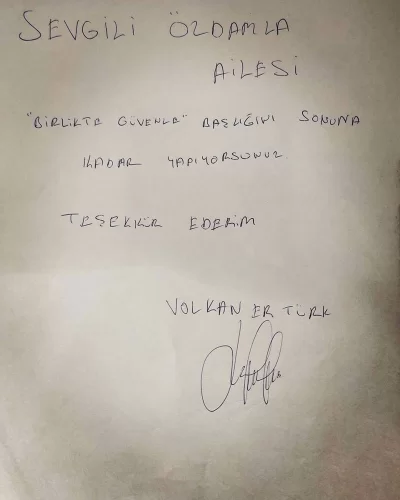 SEVGİLİ ÖZDAMLA
AİLESİ
"BİRLİKTE GÜVENLE" BAŞLIĞINI SONUNA
KADAR YAPIYORSUNUZ
TEŞEKKÜR EDERİM
VOLKAN ERTÜRK